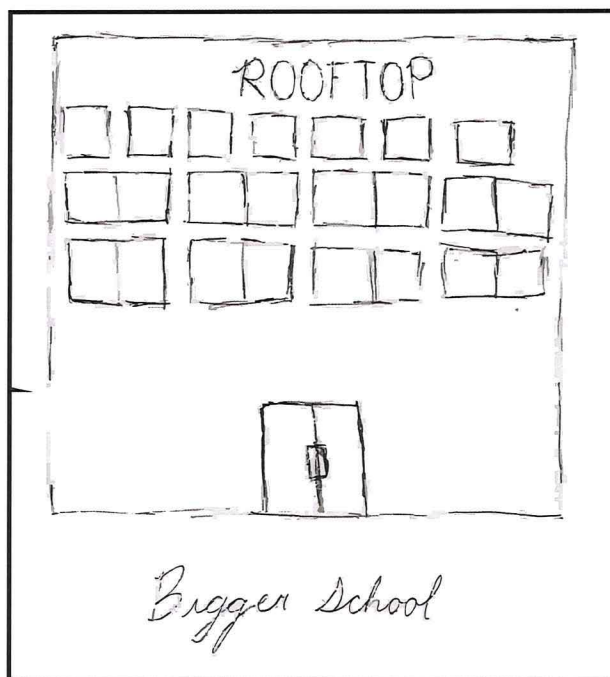 ROOFTOP
Bigger School